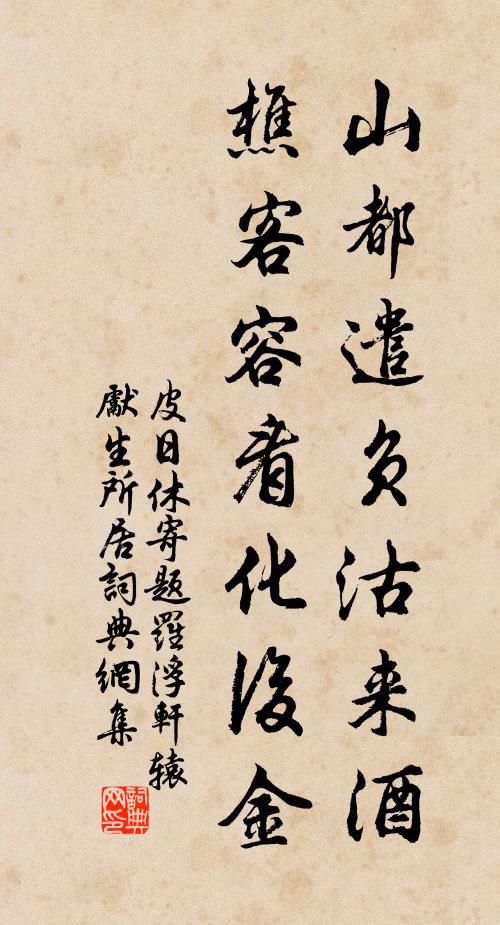 山都遣负沽来酒
樵客容看化後金
皮日休寄题羅浮軒辕
獻生所居詞典網集
詞典网印